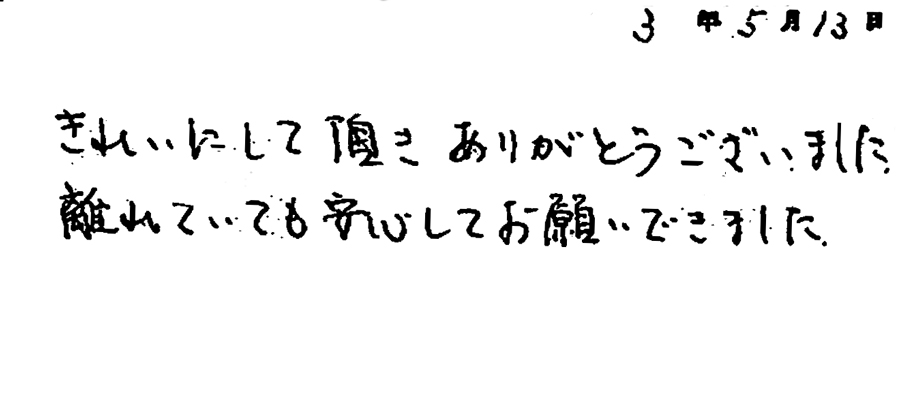 3年5月13日
きれいにして頂きありがとうございました.
離れていても安心してお願いできました.